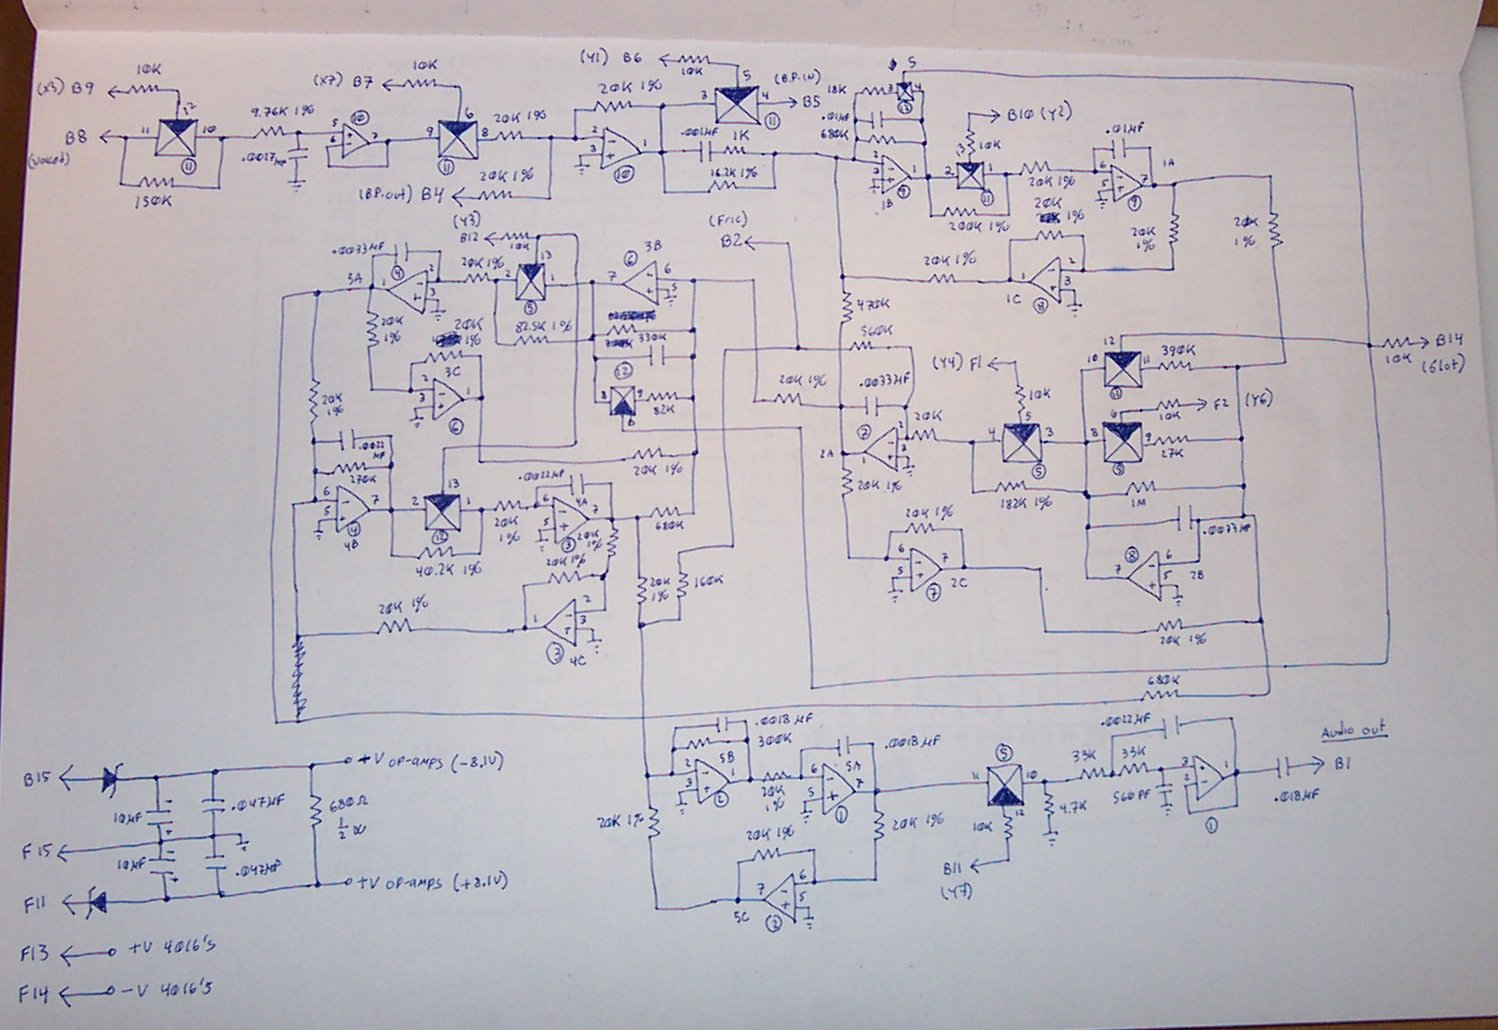 (X3) B9
10K
12
B8
(voiced)
11
10
11
150K
9.76K 1%
.0027µF
5
6
7
10
(X7) B7
10K
6
9
8
11
20K 1%
20K 1%
(B.P. out) B4
(Y1) B6
10K
20K 1%
2
3
1
10
5
3
4
11
(B.P. IN)
B5
.001µF
1K
16.2K 1%
5
18K
3
4
12
.01µF
680K
2
3
1
9
1B
B10 (Y2)
10K
13
2
1
11
200K 1%
20K 1%
.01µF
6
5
7
9
1A
20K 1%
20K 1%
20K 1%
20K 1%
1C
1
2
3
8
(Y3)
B12
10K
.0033µF
3A
4
1
2
3
20K 1%
13
2
1
5
82.5K 1%
3B
6
7
6
5
20K 1%
20K 1%
3C
2
3
1
6
330K
12
8
9
6
82K
20K 1%
(Fric)
B2
470K
560K
20K 1%
.0033µF
(Y4) F1
10K
2A
7
1
2
3
20K
4
5
3
5
182K 1%
12
10
11
12
390K
10K
B14
(Glot)
6
8
9
5
10K
F2 (Y6)
27K
1M
.0033µF
8
7
6
5
2B
20K 1%
20K 1%
6
5
7
7
2C
20K 1%
680K
20K 1%
.0022µF
270K
6
5
7
4
4B
13
2
1
12
40.2K 1%
20K 1%
.0022µF
6
5
4A
7
3
20K 1%
20K 1%
680K
20K 1%
160K
20K 1%
1
2
3
3
4C
B15
+V OP-AMPS (-8.1V)
10µF
.047µF
680Ω
1/2 W
F15
10µF
.047µF
F11
+V OP-AMPS (+8.1V)
F13
+V 4016's
F14
-V 4016's
.0018µF
300K
2
3
5B
1
2
20K 1%
.0018µF
6
5
5A
7
1
20K 1%
20K 1%
20K 1%
5C
7
6
5
2
5
11
10
12
10K
B11
(Y7)
4.7K
33K
33K
.0022µF
560PF
3
2
1
1
.018µF
Audio out
B1